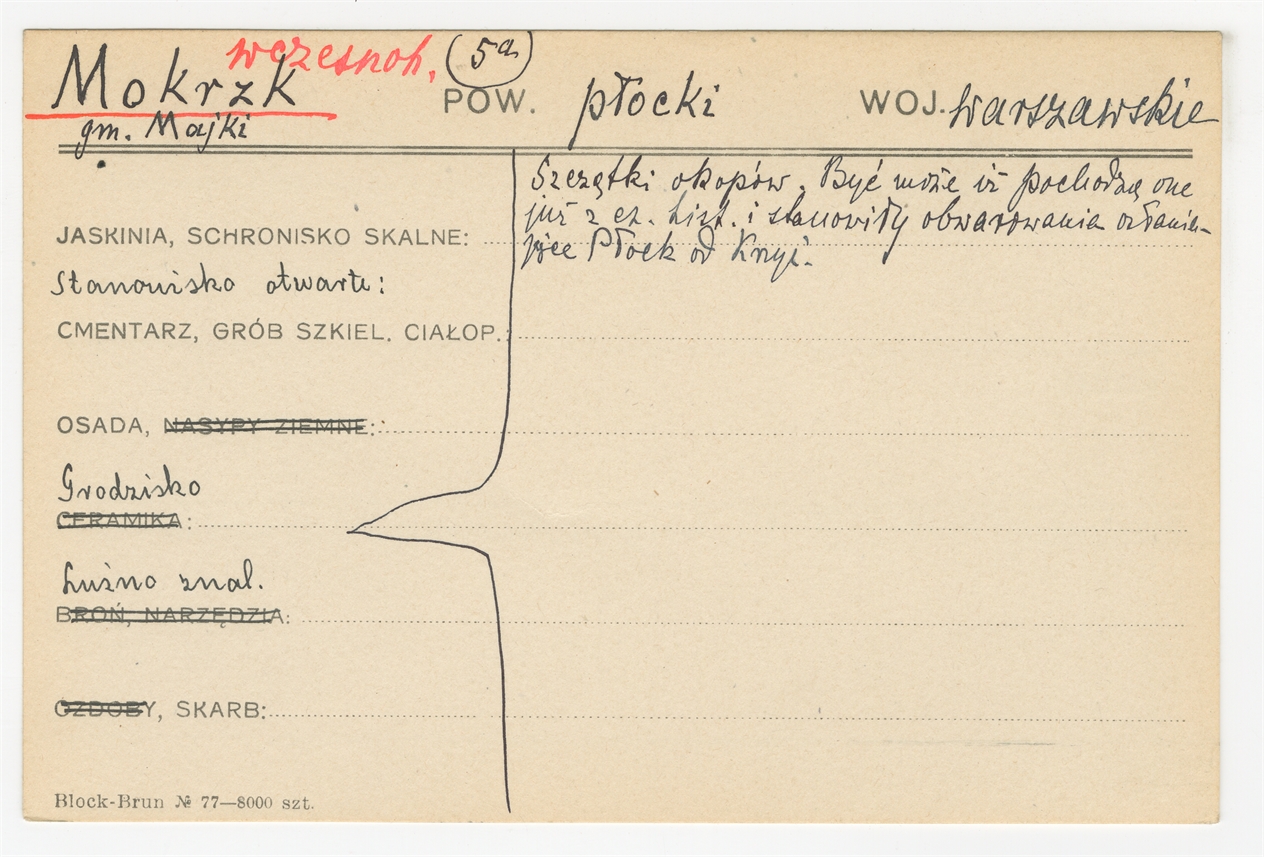 wczesnoh. 5a
Mokrzk POW. płocki WOJ. warszawskie
gm. Majki
Szczątki okopów. Być może iż pochodzą one
już z cz. hist. i stanowiły obwarowania osłania-
jące Płock od
JASKINIA, SCHRONISKO SKALNE:
Stanowisko otwarte:
CMENTARZ, GRÓB SZKIEL. CIAŁOP.:
OSADA, NASYPY ZIEMNE:
Grodzisko
CERAMIKA:
Luźno znal.
BROŃ, NARZĘDZIA:
OZDOBY, SKARB:
Block-Brun № 77—8000 szt.